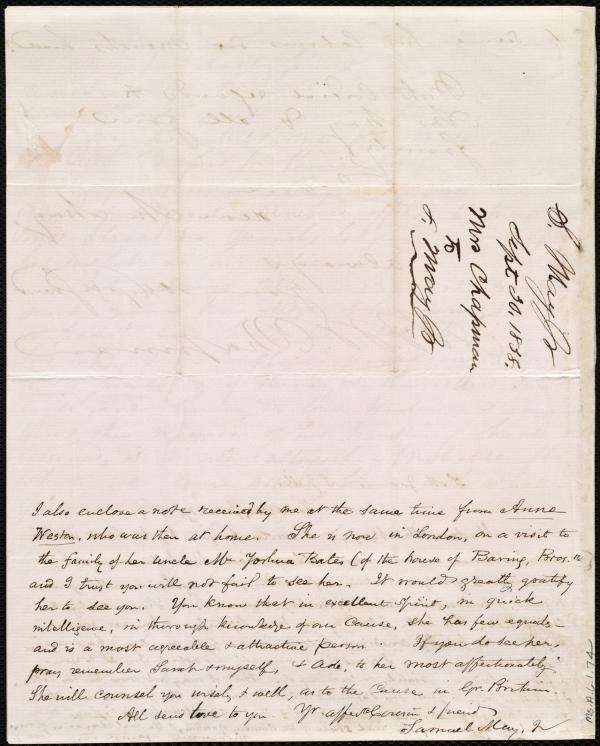 S. May Jr
Sept 20, 1855.
Mrs Chapman
To
S. May Jr
I also enclose a note received by me at the same time from Anne
Weston, who was then at home. She is now in London, on a visit to
the family of her uncle Mr. Joshua Bates (of the house of Baring, Bros. &c
and I trust you will not fail to see her. It would greatly gratify
her to see you. You know that in excellent spirit, in quick
intelligence, in thorough knowledge of our Cause, she has few equals –
and is a most agreeable & attractive person. If you do see her,
pray remember Sarah & myself, & Ade, to her most affectionately
She will counsel you wisely & well, as to the Cause in Gr. Britain.
All send love to you. Yr. affte Cousin & friend
Samuel May, Jr
Ms.A.6.1.74